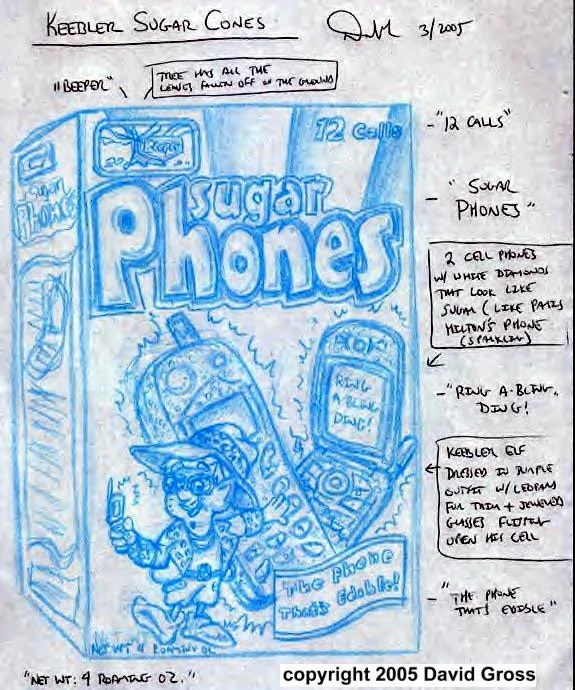 KEEBLER SUGAR CONES
3/2005
"BEEPER"
TREE HAS ALL THE
LEAVES FALLEN OFF ON THE GROUND
12 Calls
- "12 CALLS"
sugar
Phones
sugar
Phones
- "SUGAR
PHONES"
2 CELL PHONES
W/ WHITE DIAMONDS
THAT LOOK LIKE
SUGAR (LIKE PARIS
HILTON'S PHONE
(SPARKLING)
RING
A BLING
DING!
- "RING A-BLING,
DING!
KEEBLER ELF
DRESSED IN PURPLE
OUTFIT W/ LEOPARD
FUR TRIM + JEWELED
GLASSES FLIPPING
OPEN HIS CELL
The Phone
That's Edible!
- "THE PHONE
THATS EDIBLE"
NET WT 4 ROAMING OZ
"NET WT: 4 ROAMING OZ."
copyright 2005 David Gross